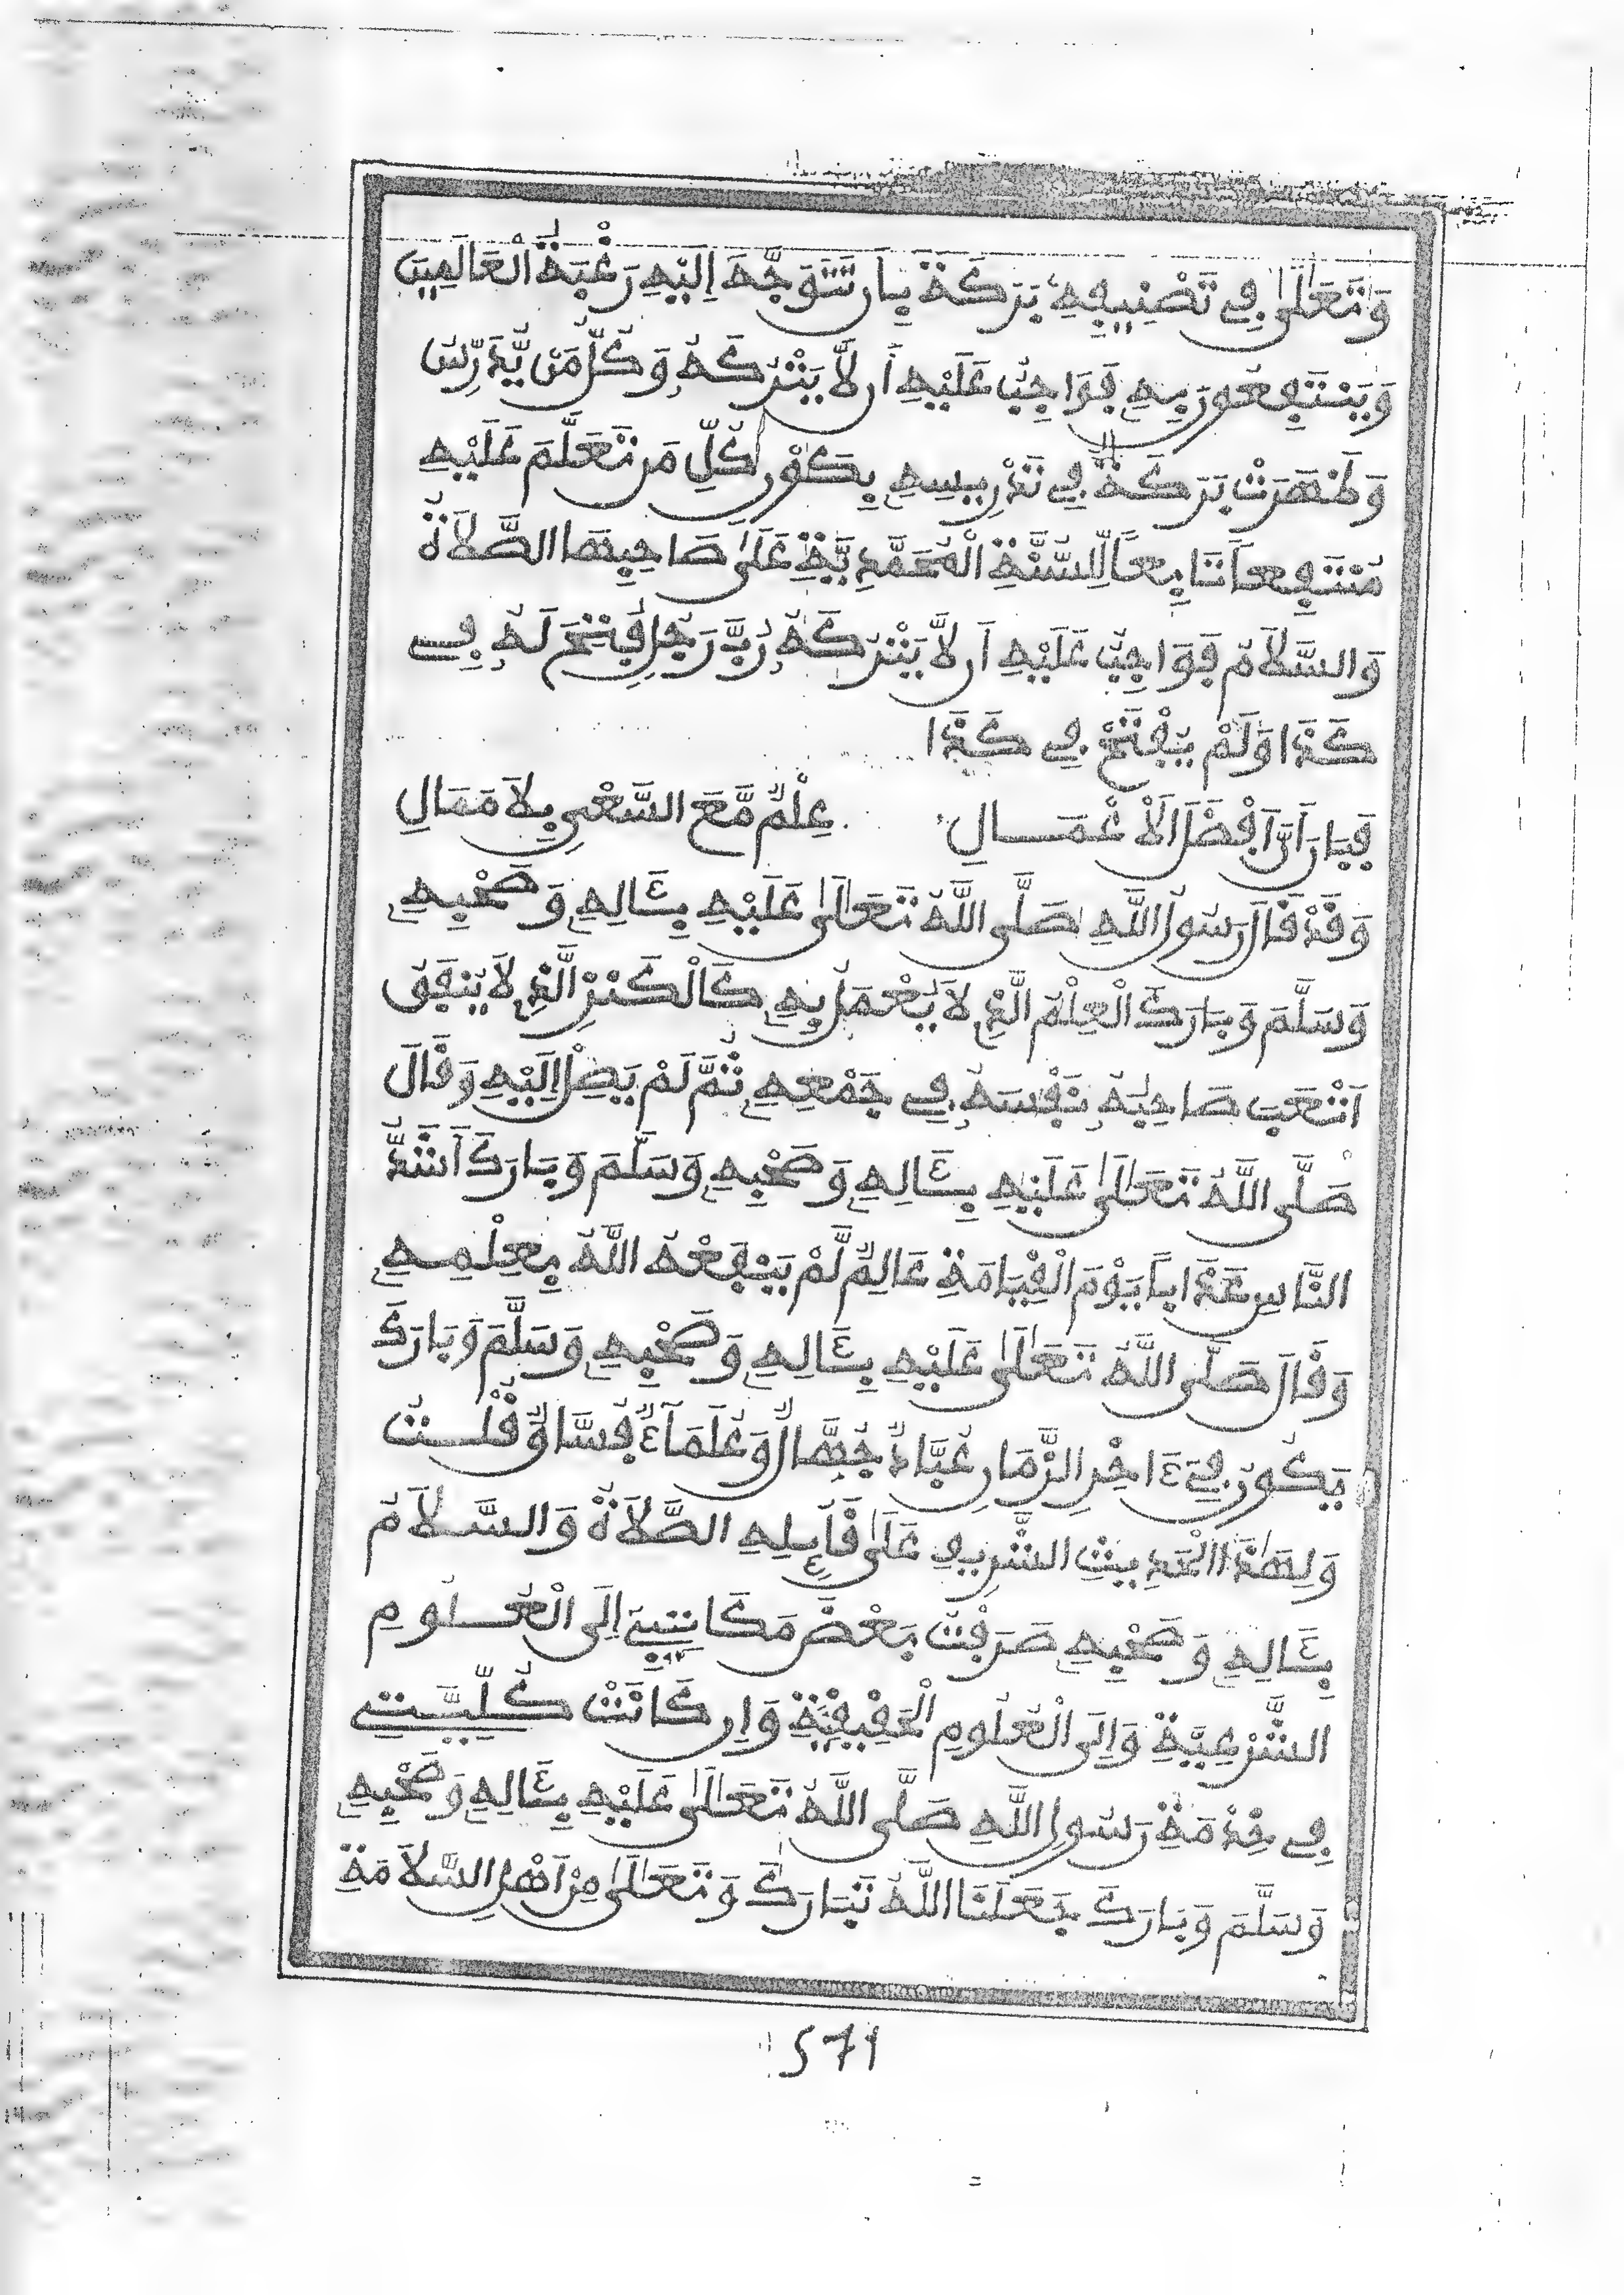 وَتَعَالَىٰ فِي تَصْنِيفِهِ بَرَكَةً بِأَن تَتَوَجَّهَ إِلَيْهِ رَغْبَةُ الْعَالَمِينَ
وَيَنْتَفِعُونَ بِهِ فَوَاجِبٌ عَلَيْهِ أَن لَّا يَتْرُكَهُ وَكُلُّ مَن يُّدَرِّسُ
وَظَهَرَتْ بَرَكَةٌ فِي تَدْرِيسِهِ بِكَوْنِ كُلِّ مَن تَعَلَّمَ عَلَيْهِ
مُنْتَفِعاً تَابِعاً لِّلسُّنَّةِ الْمُحَمَّدِيَّةِ عَلَىٰ صَاحِبِهَا الصَّلَاةُ
وَالسَّلَامُ فَوَاجِبٌ عَلَيْهِ أَن لَّا يَتْرُكَهُ رُبَّ رَجُلٍ فُتِحَ لَهُ فِي
كَذَا وَلَمْ يُفْتَحْ فِي كَذَا
فَبَانَ أَنَّ أَفْضَلَ الْأَعْمَالِ عِلْمٌ مَّعَ السَّعْيِ بِلَا مَمَالِ
وَقَدْ قَالَ رَسُولُ اللَّهِ صَلَّى اللَّهُ تَعَالَىٰ عَلَيْهِ بِـَٔالِهِ وَصَحْبِهِ
وَسَلَّمَ وَبَارَكَ الْعِلْمُ الَّذِي لَا يُعْمَلُ بِهِ كَالْكَنْزِ الَّذِي لَا يُنفَقُ
أَتْعَبَ صَاحِبُهُ نَفْسَهُ فِي جَمْعِهِ ثُمَّ لَمْ يَصِلْ إِلَيْهِ وَقَالَ
صَلَّى اللَّهُ تَعَالَىٰ عَلَيْهِ بِـَٔالِهِ وَصَحْبِهِ وَسَلَّمَ وَبَارَكَ أَشَدُّ
النَّاسِ عَذَاباً يَوْمَ الْقِيَامَةِ عَالِمٌ لَّمْ يَنْفَعْهُ اللَّهُ بِعِلْمِهِ
وَقَالَ صَلَّى اللَّهُ تَعَالَىٰ عَلَيْهِ بِـَٔالِهِ وَصَحْبِهِ وَسَلَّمَ وَبَارَكَ
يَكُونُ فِي ءَاخِرِ الزَّمَانِ عُبَّادٌ جُهَّالٌ وَعُلَمَآءٌ فُسَّاقٌ قُلْتُ
وَلِهَٰذَا الْحَدِيثِ الشَّرِيفِ عَلَىٰ قَآئِلِهِ الصَّلَاةُ وَالسَّلَامُ
بِـَٔالِهِ وَصَحْبِهِ صَرَفْتُ بَعْضَ مَكَاتِيبِي إِلَى الْعُلُومِ
الشَّرْعِيَّةِ وَإِلَى الْعُلُومِ الْحَقِيقِيَّةِ وَإِن كَانَتْ كُلِّيَّتِي
فِي خِدْمَةِ رَسُولِ اللَّهِ صَلَّى اللَّهُ تَعَالَىٰ عَلَيْهِ بِـَٔالِهِ وَصَحْبِهِ
وَسَلَّمَ وَبَارَكَ جَعَلَنَا اللَّهُ تَبَارَكَ وَتَعَالَىٰ مِنْ أَهْلِ السَّلَامَةِ
571